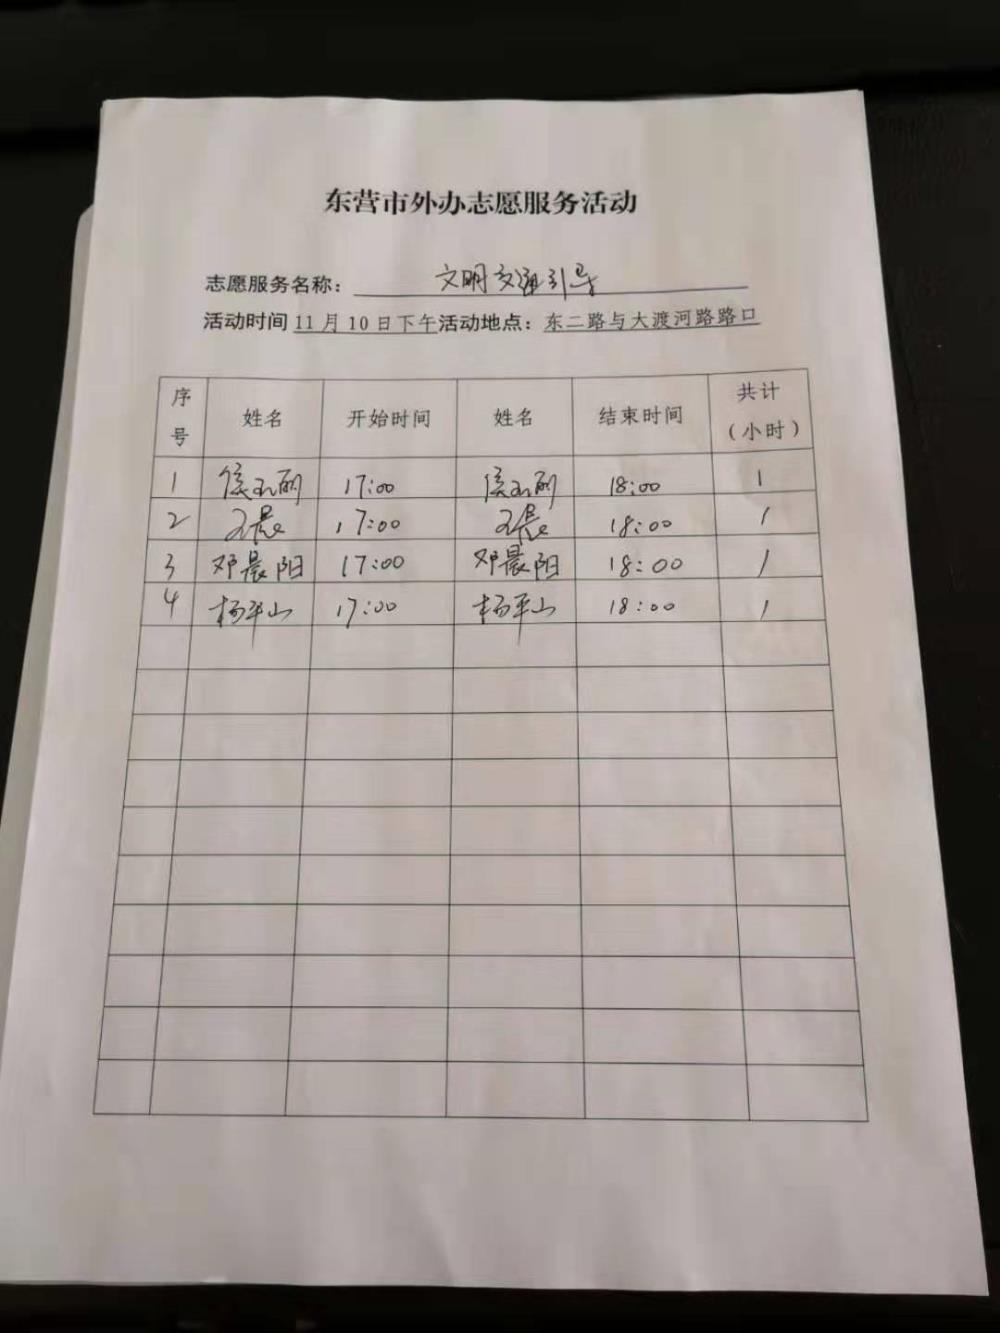 东营市外办志愿服务活动
志愿服务名称：文明交通引导
活动时间11月10日下午活动地点：东二路与大渡河路路口
序号 姓名 开始时间 姓名 结束时间 共计（小时）
1 侯玉丽 17:00 侯玉丽 18:00 1
2 王晨 17:00 王晨 18:00 1
3 邓晨阳 17:00 邓晨阳 18:00 1
4 杨平山 17:00 杨平山 18:00 1